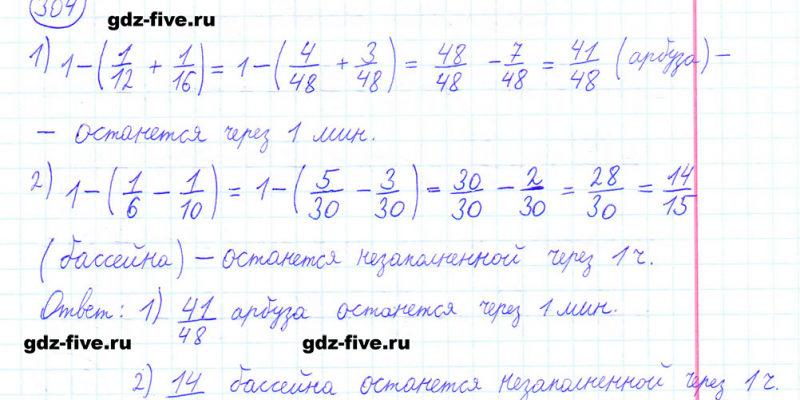 304
gdz-five.ru
1) 1-(1/12 + 1/16) = 1-(4/48 + 3/48) = 48/48 - 7/48 = 41/48 (арбуза) -
- останется через 1 мин.
2) 1-(1/6 - 1/10) = 1-(5/30 - 3/30) = 30/30 - 2/30 = 28/30 = 14/15
(бассейна) - останется незаполненной через 1 ч.
Ответ: 1) 41/48 арбуза останется через 1 мин.
gdz-five.ru gdz-five.ru
2) 14 бассейна останется незаполненной через 1 ч.